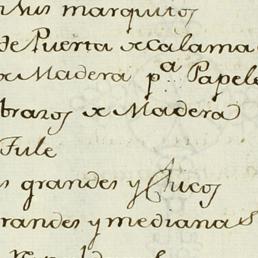 n sus marquitos
de Puerta xCalama
x Madera pª Papele
brazos x Madera
Fule
s grandes y Chicos
randes y medianas